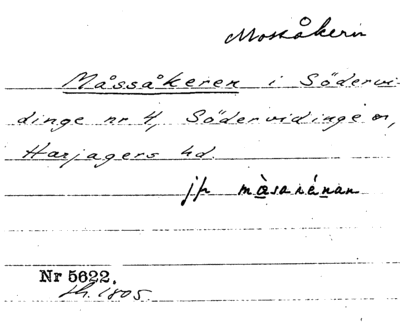 Mossåkern
Måssåkeren i Södervi-
dinge nr 4, Södervidinge sn,
Harjagers hd.
jfr
Nr 5622.
1805